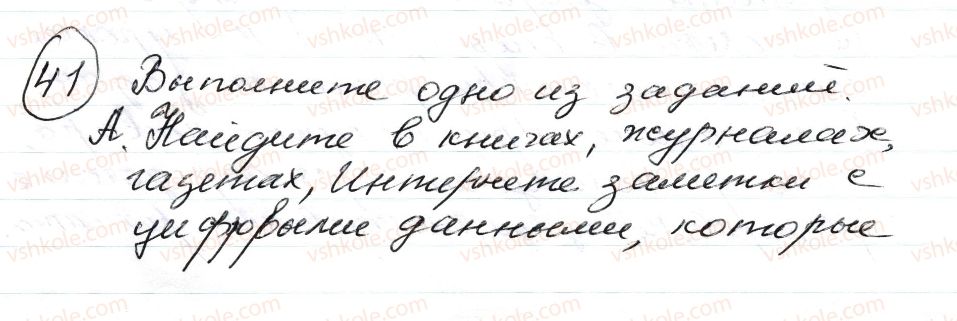 41 Выполните одно из заданий.
А. Найдите в книгах, журналах,
газетах, Интернете заметки с
цифровыми данными, которые